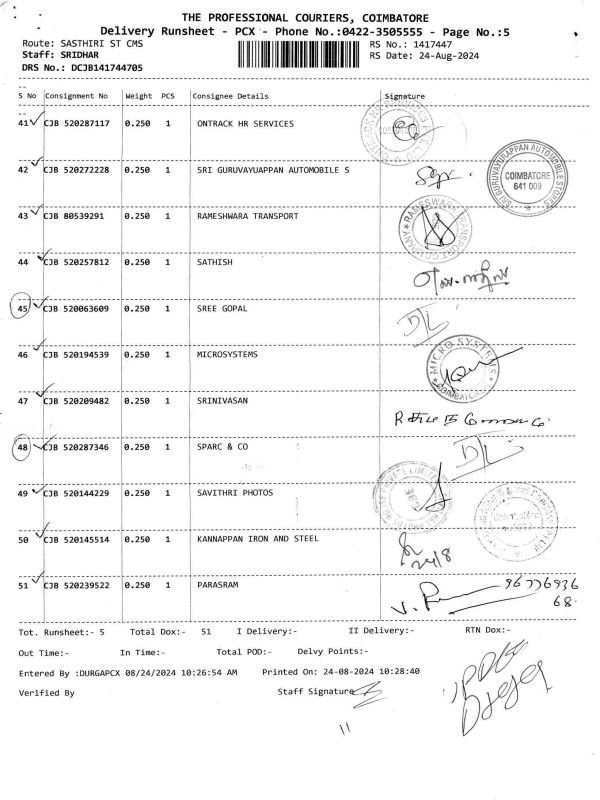 THE PROFESSIONAL COURIERS, COIMBATORE
Delivery Runsheet - PCX - Phone No.:0422-3505555 - Page No.:5
Route: SASTHIRI ST CMS RS No.: 1417447
Staff: SRIDHAR RS Date: 24-Aug-2024
DRS No.: DCJB141744705
S No Consignment No Weight PCS Consignee Details Signature
41 CJB 520287117 0.250 1 ONTRACK HR SERVICES
42 CJB 520272228 0.250 1 SRI GURUVAYUAPPAN AUTOMOBILE S
SRI GURUVAYURAPPAN AUTOMOBILE STORES
COIMBATORE
641 009
43 CJB 80539291 0.250 1 RAMESHWARA TRANSPORT
RAMESWARA TRANSPORT COMPANY
44 CJB 520257812 0.250 1 SATHISH
45 CJB 520063609 0.250 1 SREE GOPAL
D/L
46 CJB 520194539 0.250 1 MICROSYSTEMS
MICRO SYSTEMS
COIMBATORE
47 CJB 520209482 0.250 1 SRINIVASAN
48 CJB 520287346 0.250 1 SPARC & CO
D/L
49 CJB 520144229 0.250 1 SAVITHRI PHOTOS
50 CJB 520145514 0.250 1 KANNAPPAN IRON AND STEEL
24/8
51 CJB 520239522 0.250 1 PARASRAM
96776936
68-
Tot. Runsheet:- 5 Total Dox:- 51 I Delivery:- II Delivery:- RTN Dox:-
Out Time:- In Time:- Total POD:- Delvy Points:-
Entered By :DURGAPCX 08/24/2024 10:26:54 AM Printed On: 24-08-2024 10:28:40
Verified By Staff Signature